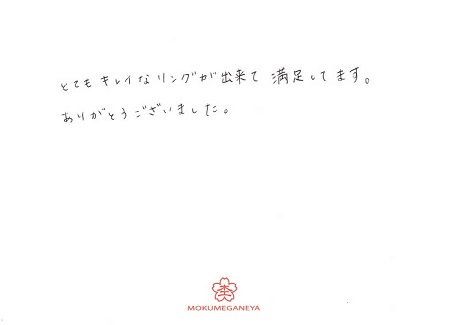 とてもキレイなリングが出来て 満足してます。
ありがとうございました。
MOKUMEGANEYA